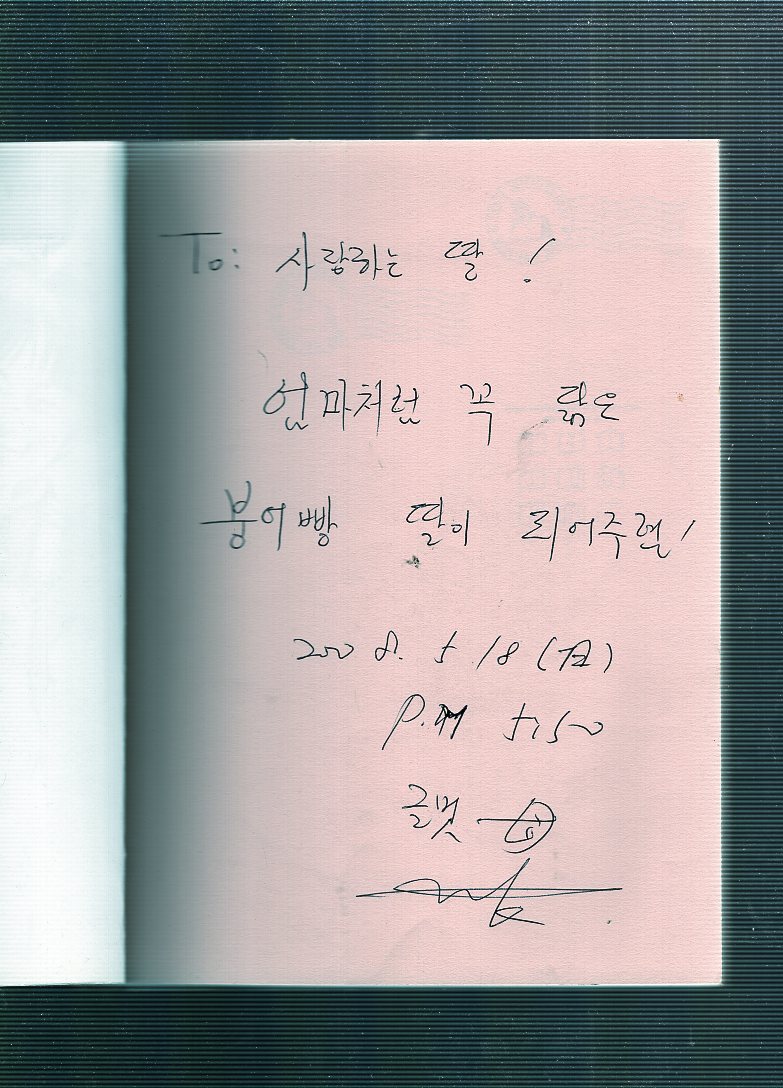 To: 사랑하는 딸!
엄마처럼 꼭 닮은
붕어빵 딸이 되어주렴!
2008. 5. 18 (日)
P.M 5:50
글벗